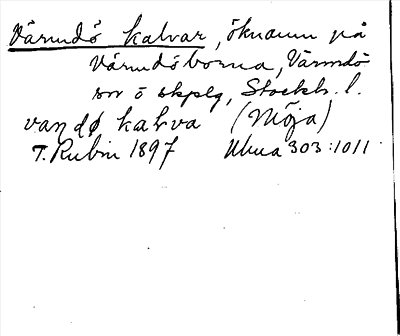 Värmdö kalvar, öknamn på
Värmdöborna, Värmdö
sn ö skplg, Stockh. l.
vandø kalva (Möja)
T. Rubin 1897 Ulma 303:1011